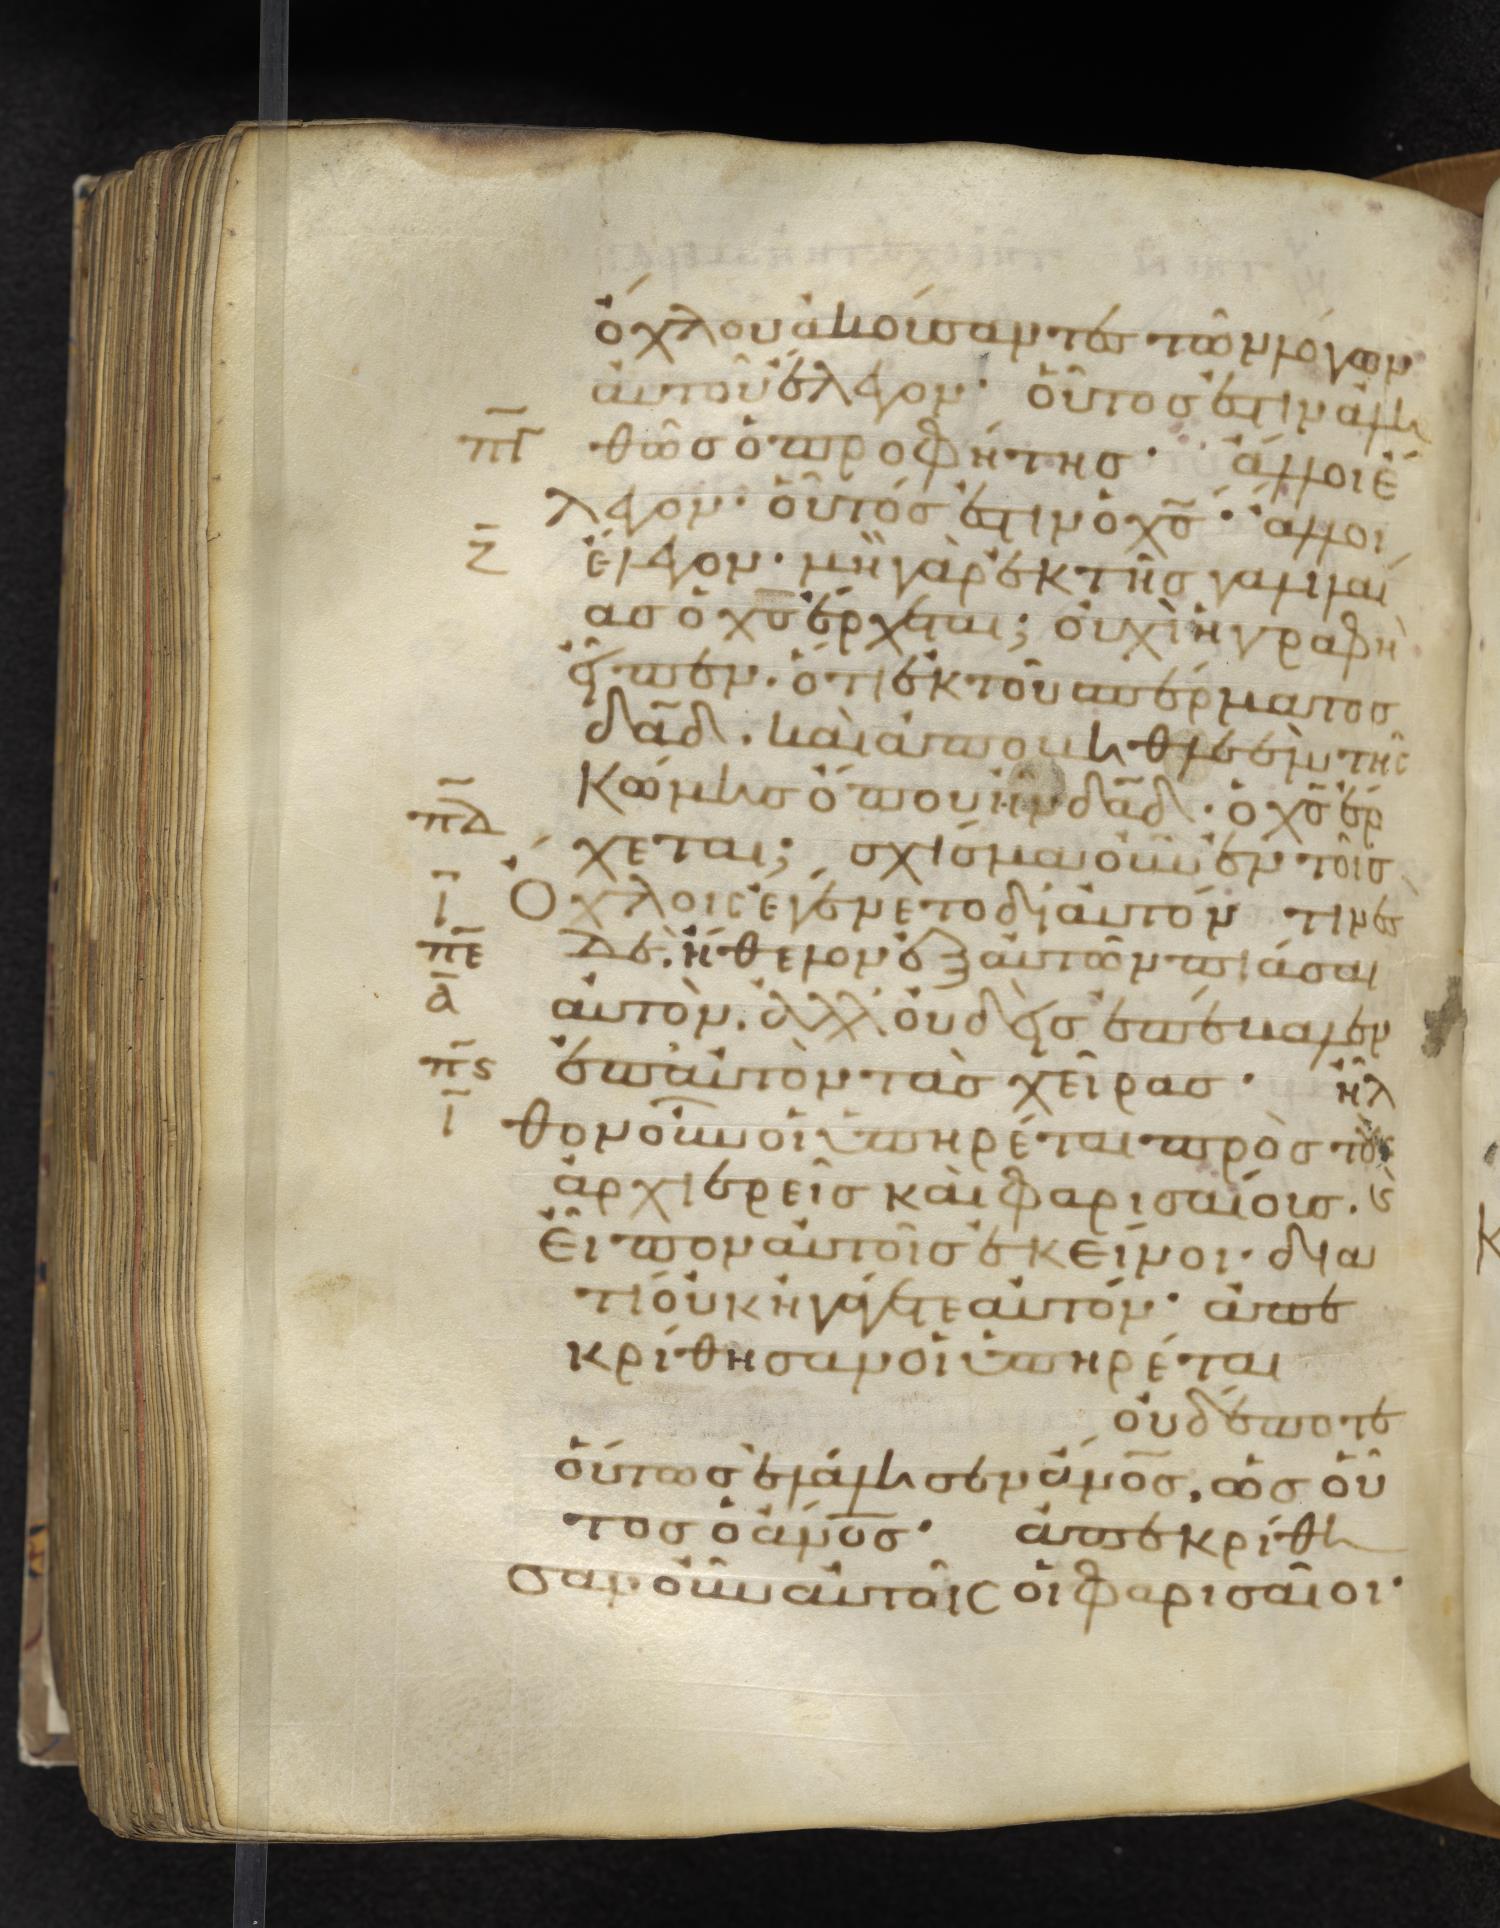 ὄχλου ἀκούσαντες τῶν λόγων
αὐτοῦ ἔλεγον· οὗτος ἐστιν ἀλη
π̅γ̅ θῶς ὁ προφήτης· ἄλλοι ἔ
λεγον· οὗτός ἐστιν ὁ χ̅ς̅· ἄλλοι
ζ̅ ἔλεγον· μὴ γὰρ ἐκ τῆς γαλιλαί
ας ὁ χ̅ς̅ ἔρχεται; οὐχὶ ἡ γραφὴ
εἶπεν· ὅτι ἐκ τοῦ σπέρματος
δ̅α̅δ̅· καὶ ἀπὸ βηθλεὲμ τῆς
κώμης ὅπου ἦν δ̅α̅δ̅· ὁ χ̅ς̅ ἔρ
π̅δ̅ χεται; σχίσμα οὖν ἐν τοῖς
ι̅ ὄχλοις ἐγένετο δι αὐτόν τινες
π̅ε̅ δὲ ἤθελον ἐξ αὐτῶν πιάσαι
α̅ αὐτὸν· ἀλλ οὐδεὶς ἐπέβαλεν
π̅ς̅ ἐπ αὐτὸν τὰς χεῖρας· ἦλ
ι̅ θον οὖν οἱ ὑπηρέται πρὸς τοὺς
ἀρχιερεῖς καὶ φαρισαίοις· κ
εἶπον αὐτοῖς ἐκεῖνοι· δια
τί οὐκ ἠγάγετε αὐτόν· ἀπε
κρίθησαν οἱ ὑπηρέται
οὐδέποτε
οὕτως ἐλάλησεν ἄν̅ο̅ς̅, ὡς οὗ
τος ὁ ἄν̅ο̅ς̅· ἀπεκρίθη
σαν οὖν αὐτοῖς οἱ φαρισαῖοι·